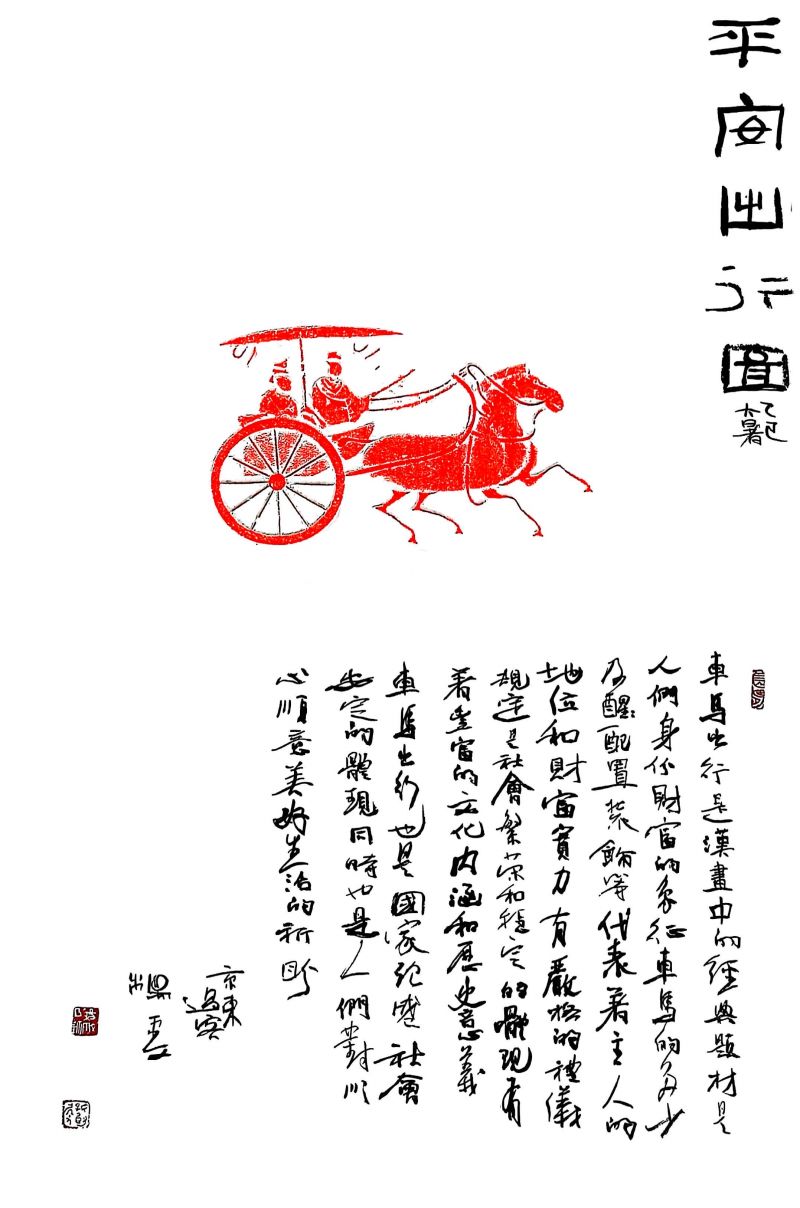 平安出行圖
車馬出行是漢畫中的經典題材是
人們身份財富的象征車馬的多少
及配置裝飾等代表著主人的
地位和財富實力有嚴格的禮儀
規定是社會繁荣和穩定的體現有
着豐富的文化内涵和歷史意義
車馬出行也是國家纪盛社會
安定的體現同時也是人們對順
心順意美好生活的祈盼
京東